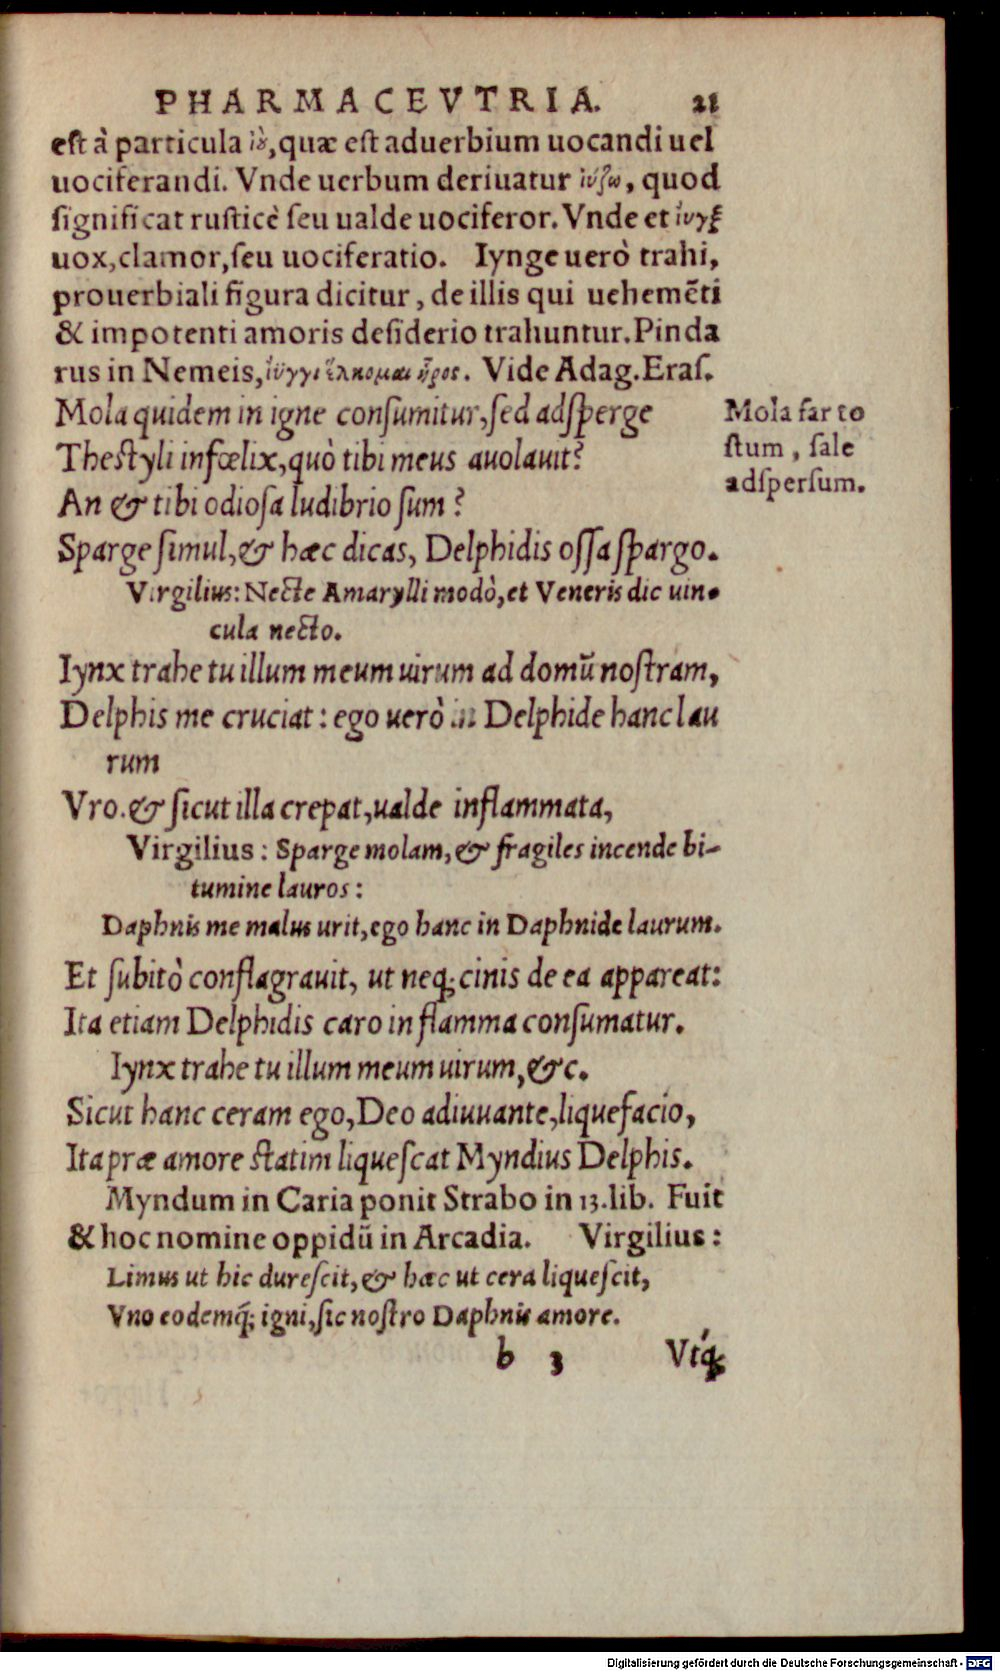 PHARMACEVTRIA. 21
est à particula ἰὸ, quæ est aduerbium uocandi uel
uociferandi. Vnde uerbum deriuatur ἰύζω, quod
significat rusticè seu ualde uociferor. Vnde et ἰυγξ
uox, clamor, seu uociferatio. Iynge uerò trahi,
prouerbiali figura dicitur, de illis qui uehemẽti
& impotenti amoris desiderio trahuntur. Pinda
rus in Nemeis, ἴϋγγι ἕλκομαι ἦρος. Vide Adag. Eras.
Mola quidem in igne consumitur, sed adsperge
Thestyli infœlix, quò tibi meus auolauit?
An & tibi odiosa ludibrio sum?
Sparge simul, & hæc dicas, Delphidis ossa spargo.
Mola far to
stum, sale
adspersum.
Virgilius: Necte Amarylli modò, et Veneris dic uin-
cula necto.
Iynx trahe tu illum meum uirum ad domũ nostram,
Delphis me cruciat: ego uerò in Delphide hanc lau
rum
Vro. & sicut illa crepat, ualde inflammata,
Virgilius: Sparge molam, & fragiles incende bi-
tumine lauros:
Daphnis me malus urit, ego hanc in Daphnide laurum.
Et subitò conflagrauit, ut neq; cinis de ea appareat:
Ita etiam Delphidis caro in flamma consumatur.
Iynx trahe tu illum meum uirum, &c.
Sicut hanc ceram ego, Deo adiuuante, liquefacio,
Ita præ amore statim liquescat Myndius Delphis.
Myndum in Caria ponit Strabo in 13. lib. Fuit
& hoc nomine oppidũ in Arcadia. Virgilius:
Limus ut hic durescit, & hæc ut cera liquescit,
Vno eodemq́; igni, sic nostro Daphnis amore.
b 3 Vtq́;
Digitalisierung gefördert durch die Deutsche Forschungsgemeinschaft - DFG